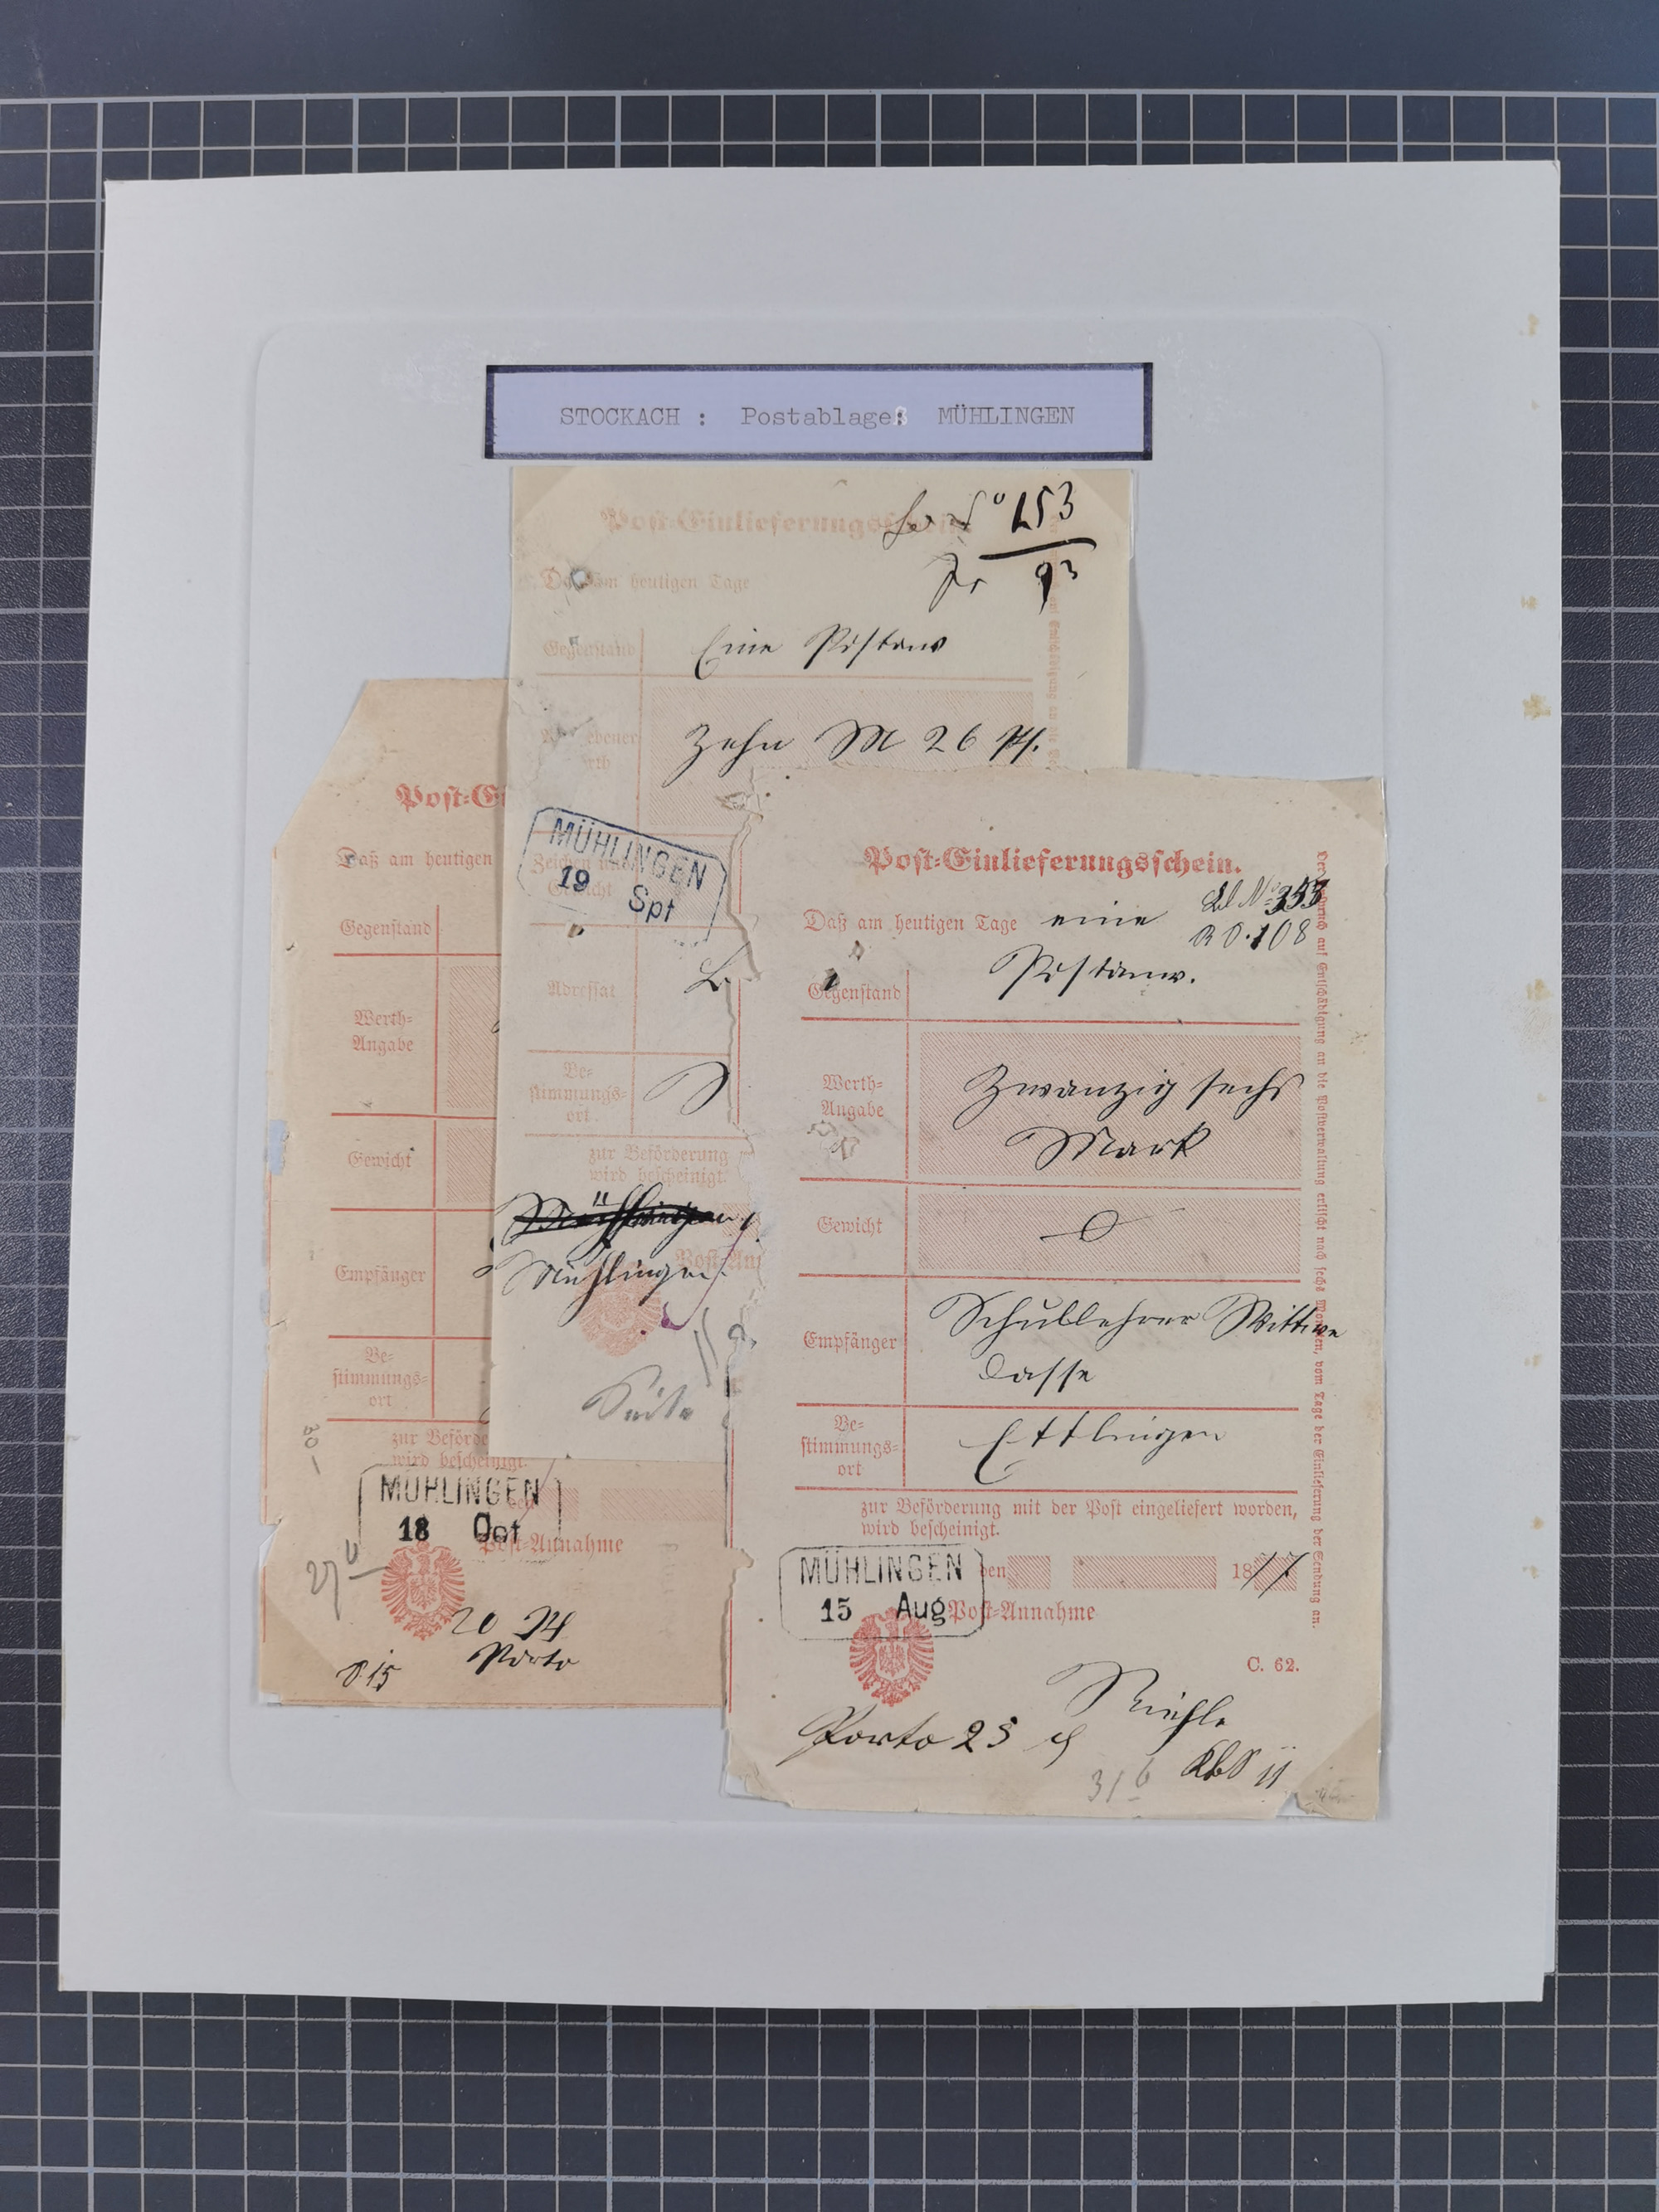 STOCKACH : Postablage: MÜHLINGEN
Post-Einlieferungsschein
No 253
93
Daß am heutigen Tage
Gegenstand
Eine Postanw
Zehn M 26 Pf.
MÜHLINGEN
19 Spt
Zeichen und
Gewicht
Adressat
Be-
stimmungs-
ort.
zur Beförderung
wird bescheinigt.
Mühlingen
Post-An
Post-Ei
Daß am heutigen
Gegenstand
Werth-
Angabe
Gewicht
Empfänger
Be-
stimmungs-
ort
zur Beförde
wird bescheinigt.
MÜHLINGEN
18 Oct
Post-Annahme
20 Pf
Porto
Post-Einlieferungsschein.
Daß am heutigen Tage eine
No 353
108
Postanw.
Gegenstand
Werth-
Angabe
Zwanzig sechs
Mark
Gewicht
0
Empfänger
Schullehrer Wittwe
Casse
Be-
stimmungs-
ort
Ettlingen
zur Beförderung mit der Post eingeliefert worden,
wird bescheinigt.
MÜHLINGEN
15 Aug
den 1877
Post-Annahme
C. 62.
Porto 25
Der Anspruch auf Entschädigung an die Postverwaltung erlischt nach sechs Monaten, vom Tage der Einlieferung der Sendung an.